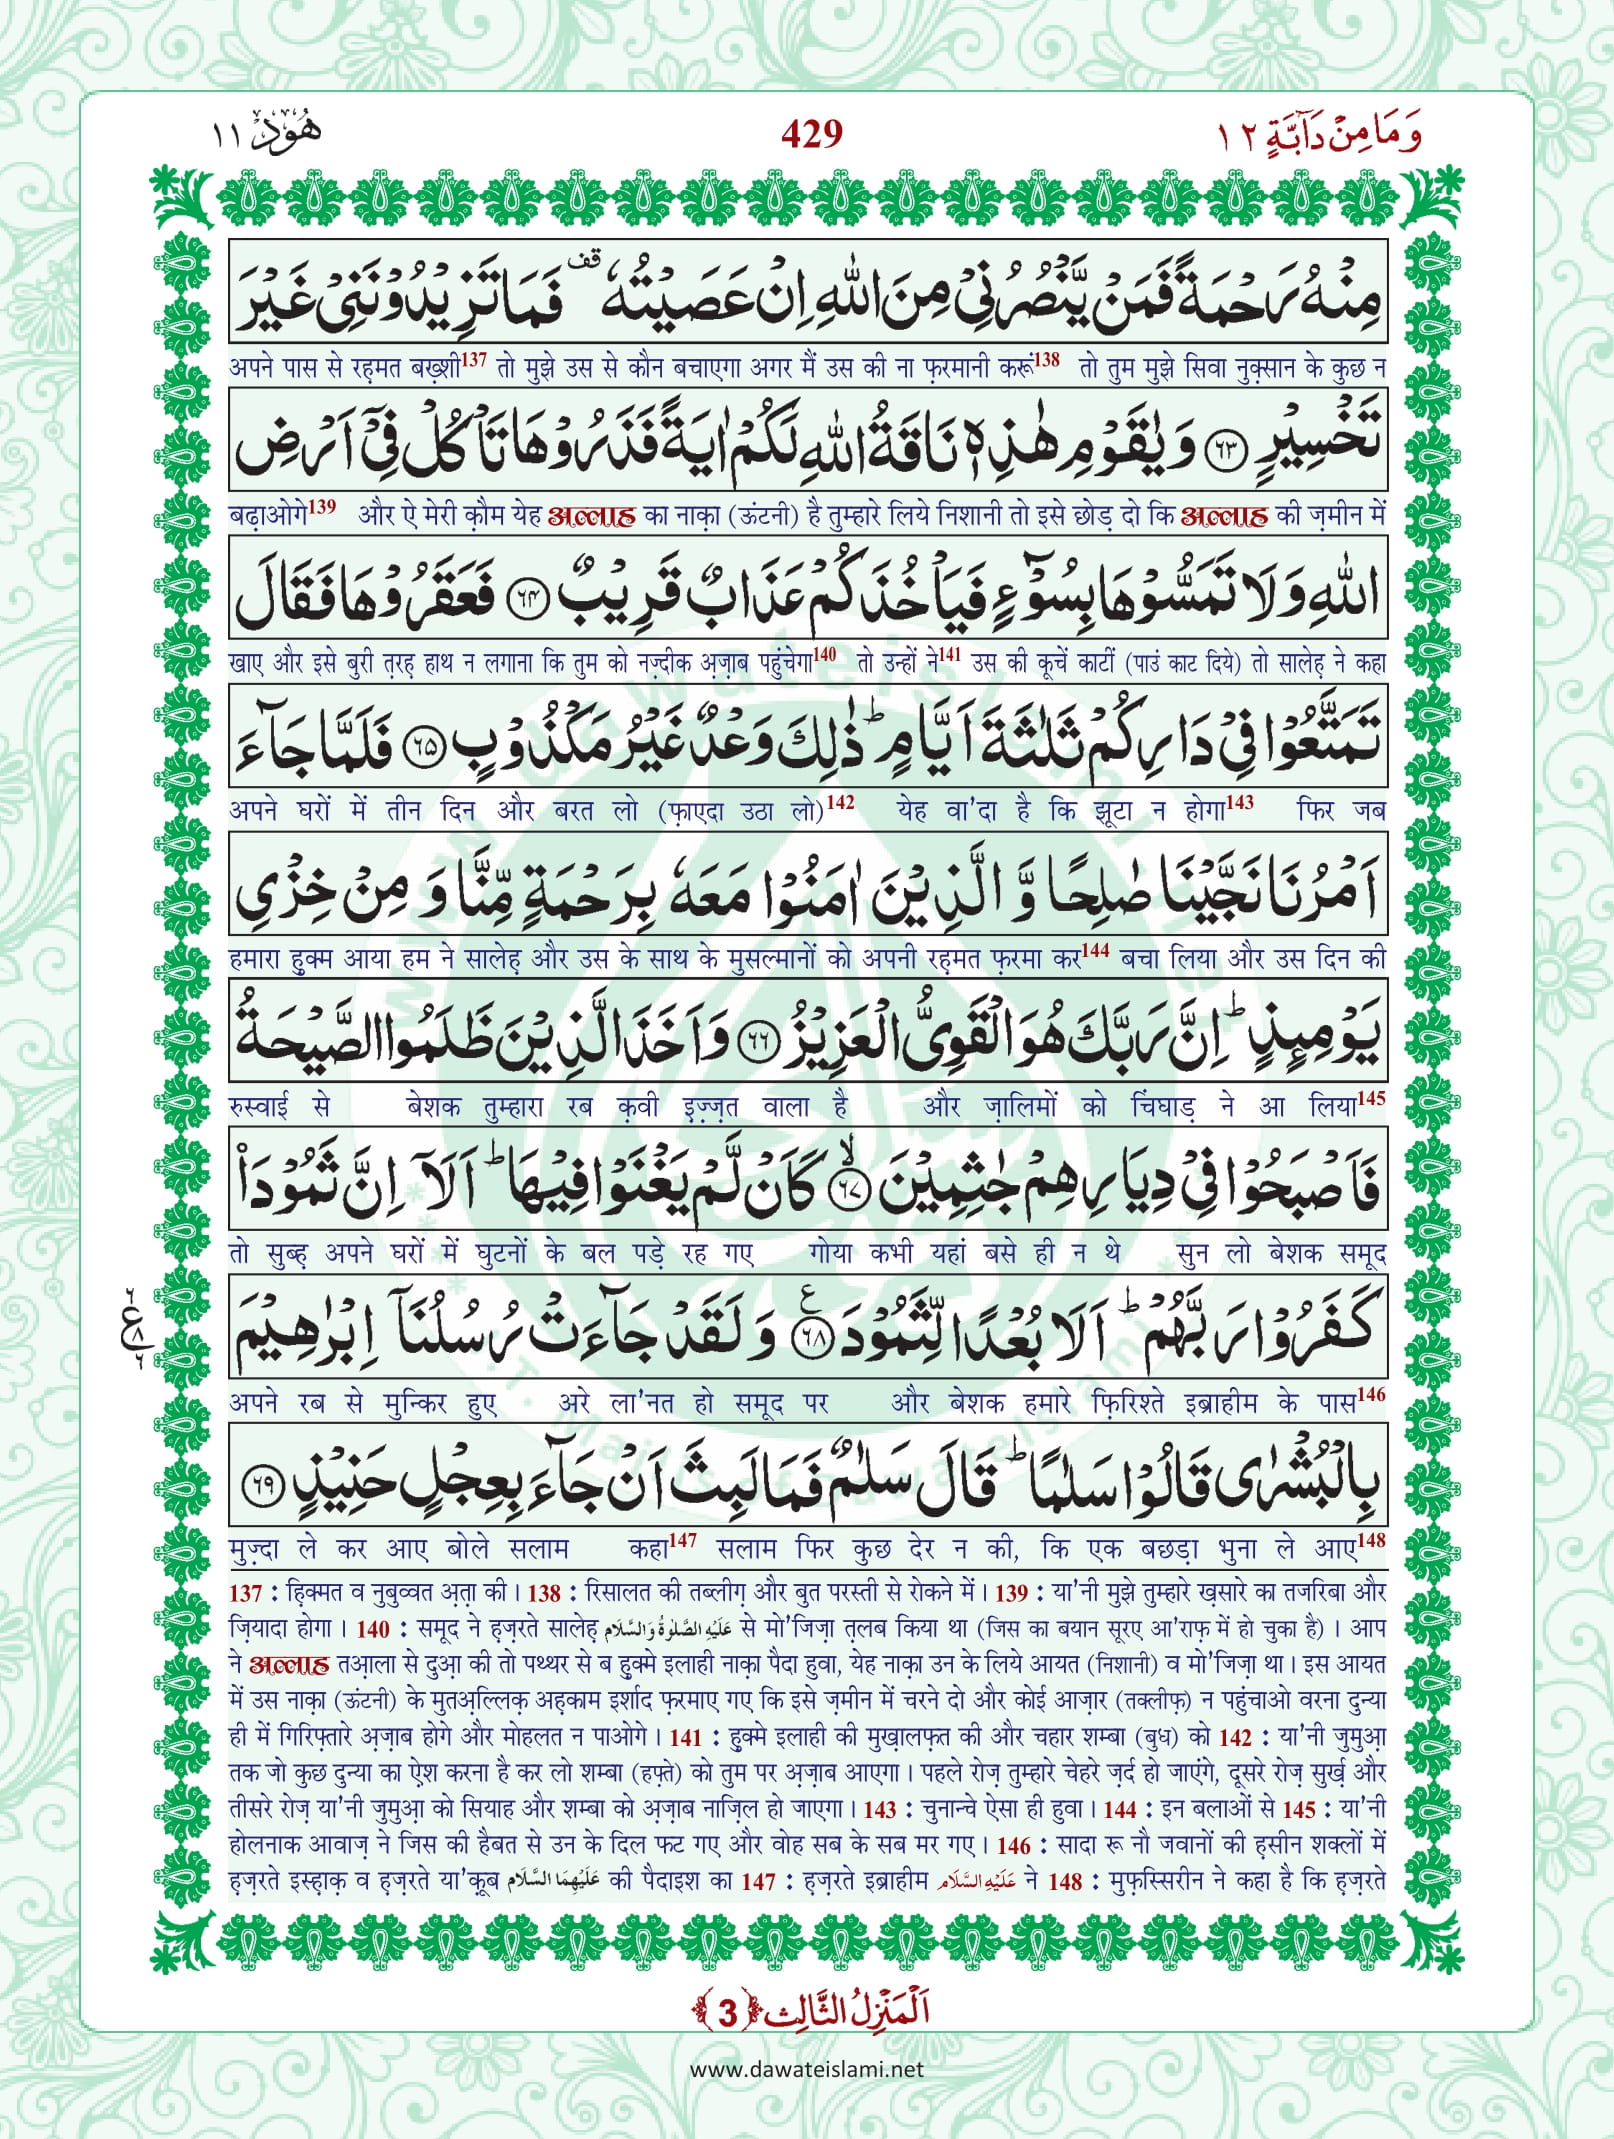 وَمَا مِنْ دَآبَّةٍ ١٢
429
هُوْد ١١
مِنْهُ رَحْمَةً فَمَنْ يَّنْصُرُنِيْ مِنَ اللّٰهِ اِنْ عَصَيْتُهٗ ۫ قف فَمَا تَزِيْدُوْنَنِيْ غَيْرَ
अपने पास से रह़मत बख़्शी137 तो मुझे उस से कौन बचाएगा अगर मैं उस की ना फ़रमानी करूं138 तो तुम मुझे सिवा नुक़्सान के कुछ न
تَخْسِيْرٍ ﴿۶۳﴾ وَ يٰقَوْمِ هٰذِهٖ نَاقَةُ اللّٰهِ لَكُمْ اٰيَةً فَذَرُوْهَا تَاْكُلْ فِيْۤ اَرْضِ
बढ़ाओगे139 और ऐ मेरी क़ौम येह अल्लाह का नाक़ा (ऊंटनी) है तुम्हारे लिये निशानी तो इसे छोड़ दो कि अल्लाह की ज़मीन में
اللّٰهِ وَ لَا تَمَسُّوْهَا بِسُوْٓءٍ فَيَاْخُذَكُمْ عَذَابٌ قَرِيْبٌ ﴿۶۴﴾ فَعَقَرُوْهَا فَقَالَ
खाए और इसे बुरी त़रह़ हाथ न लगाना कि तुम को नज़्दीक अ़ज़ाब पहुंचेगा140 तो उन्हों ने141 उस की कूचें काटीं (पाउं काट दिये) तो सालेह़ ने कहा
تَمَتَّعُوْا فِيْ دَارِكُمْ ثَلٰثَةَ اَيَّامٍ ؕ ذٰلِكَ وَعْدٌ غَيْرُ مَكْذُوْبٍ ﴿۶۵﴾ فَلَمَّا جَآءَ
अपने घरों में तीन दिन और बरत लो (फ़ाएदा उठा लो)142 येह वा'दा है कि झूटा न होगा143 फिर जब
اَمْرُنَا نَجَّيْنَا صٰلِحًا وَّ الَّذِيْنَ اٰمَنُوْا مَعَهٗ بِرَحْمَةٍ مِّنَّا وَ مِنْ خِزْيِ
हमारा हु़क्म आया हम ने सालेह़ और उस के साथ के मुसल्मानों को अपनी रह़मत फ़रमा कर144 बचा लिया और उस दिन की
يَوْمِىِٕذٍ ؕ اِنَّ رَبَّكَ هُوَ الْقَوِيُّ الْعَزِيْزُ ﴿۶۶﴾ وَ اَخَذَ الَّذِيْنَ ظَلَمُوا الصَّيْحَةُ
रुस्वाई से बेशक तुम्हारा रब क़वी इ़ज़्ज़त वाला है और ज़ालिमों को चिंघाड़ ने आ लिया145
فَاَصْبَحُوْا فِيْ دِيَارِهِمْ جٰثِمِيْنَ ﴿ۙ۶۷﴾ كَاَنْ لَّمْ يَغْنَوْا فِيْهَا ؕ اَلَاۤ اِنَّ ثَمُوْدَاۡ
तो सुब्ह़ अपने घरों में घुटनों के बल पड़े रह गए गोया कभी यहां बसे ही न थे सुन लो बेशक समूद
كَفَرُوْا رَبَّهُمْ ؕ اَلَا بُعْدًا لِّثَمُوْدَ ﴿۶۸﴾ ع وَ لَقَدْ جَآءَتْ رُسُلُنَاۤ اِبْرٰهِيْمَ
अपने रब से मुन्किर हुए अरे ला'नत हो समूद पर और बेशक हमारे फ़िरिश्ते इब्राहीम के पास146
بِالْبُشْرٰى قَالُوْا سَلٰمًا ؕ قَالَ سَلٰمٌ فَمَا لَبِثَ اَنْ جَآءَ بِعِجْلٍ حَنِيْذٍ ﴿۶۹﴾
मुज़्दा ले कर आए बोले सलाम कहा147 सलाम फिर कुछ देर न की, कि एक बछड़ा भुना ले आए148
137 : ह़िक्मत व नुबुव्वत अ़त़ा की। 138 : रिसालत की तब्लीग़ और बुत परस्ती से रोकने में। 139 : या'नी मुझे तुम्हारे ख़सारे का तजरिबा और
ज़ियादा होगा। 140 : समूद ने ह़ज़रते सालेह़ عَلَيْهِ الصَّلٰوةُ وَالسَّلَام से मो'जिज़ा त़लब किया था (जिस का बयान सूरए आ'राफ़ में हो चुका है)। आप
ने अल्लाह तआ़ला से दुआ़ की तो पथ्थर से ब हु़क्मे इलाही नाक़ा पैदा हुवा, येह नाक़ा उन के लिये आयत (निशानी) व मो'जिज़ा था। इस आयत
में उस नाक़ा (ऊंटनी) के मुतअ़ल्लिक़ अह़काम इर्शाद फ़रमाए गए कि इसे ज़मीन में चरने दो और कोई आज़ार (तक्लीफ़) न पहुंचाओ वरना दुन्या
ही में गिरिफ़्तारे अ़ज़ाब होगे और मोहलत न पाओगे। 141 : हु़क्मे इलाही की मुख़ालफ़त की और चहार शम्बा (बुध) को 142 : या'नी जुमुआ़
तक जो कुछ दुन्या का ऐ़श करना है कर लो शम्बा (हफ़्ते) को तुम पर अ़ज़ाब आएगा। पहले रोज़ तुम्हारे चेहरे ज़र्द हो जाएंगे, दूसरे रोज़ सुर्ख़ और
तीसरे रोज़ या'नी जुमुआ़ को सियाह और शम्बा को अ़ज़ाब नाज़िल हो जाएगा। 143 : चुनान्चे ऐसा ही हुवा। 144 : इन बलाओं से 145 : या'नी
होलनाक आवाज़ ने जिस की हैबत से उन के दिल फट गए और वोह सब के सब मर गए। 146 : सादा रू नौ जवानों की ह़सीन शक्लों में
ह़ज़रते इस्ह़ाक़ व ह़ज़रते या'क़ूब عَلَيْهِمَا السَّلَام की पैदाइश का 147 : ह़ज़रते इब्राहीम عَلَيْهِ السَّلَام ने 148 : मुफ़स्सिरीन ने कहा है कि ह़ज़रते
اَلْمَنْزِلُ الثَّالِث ﴿3﴾
www.dawateislami.net